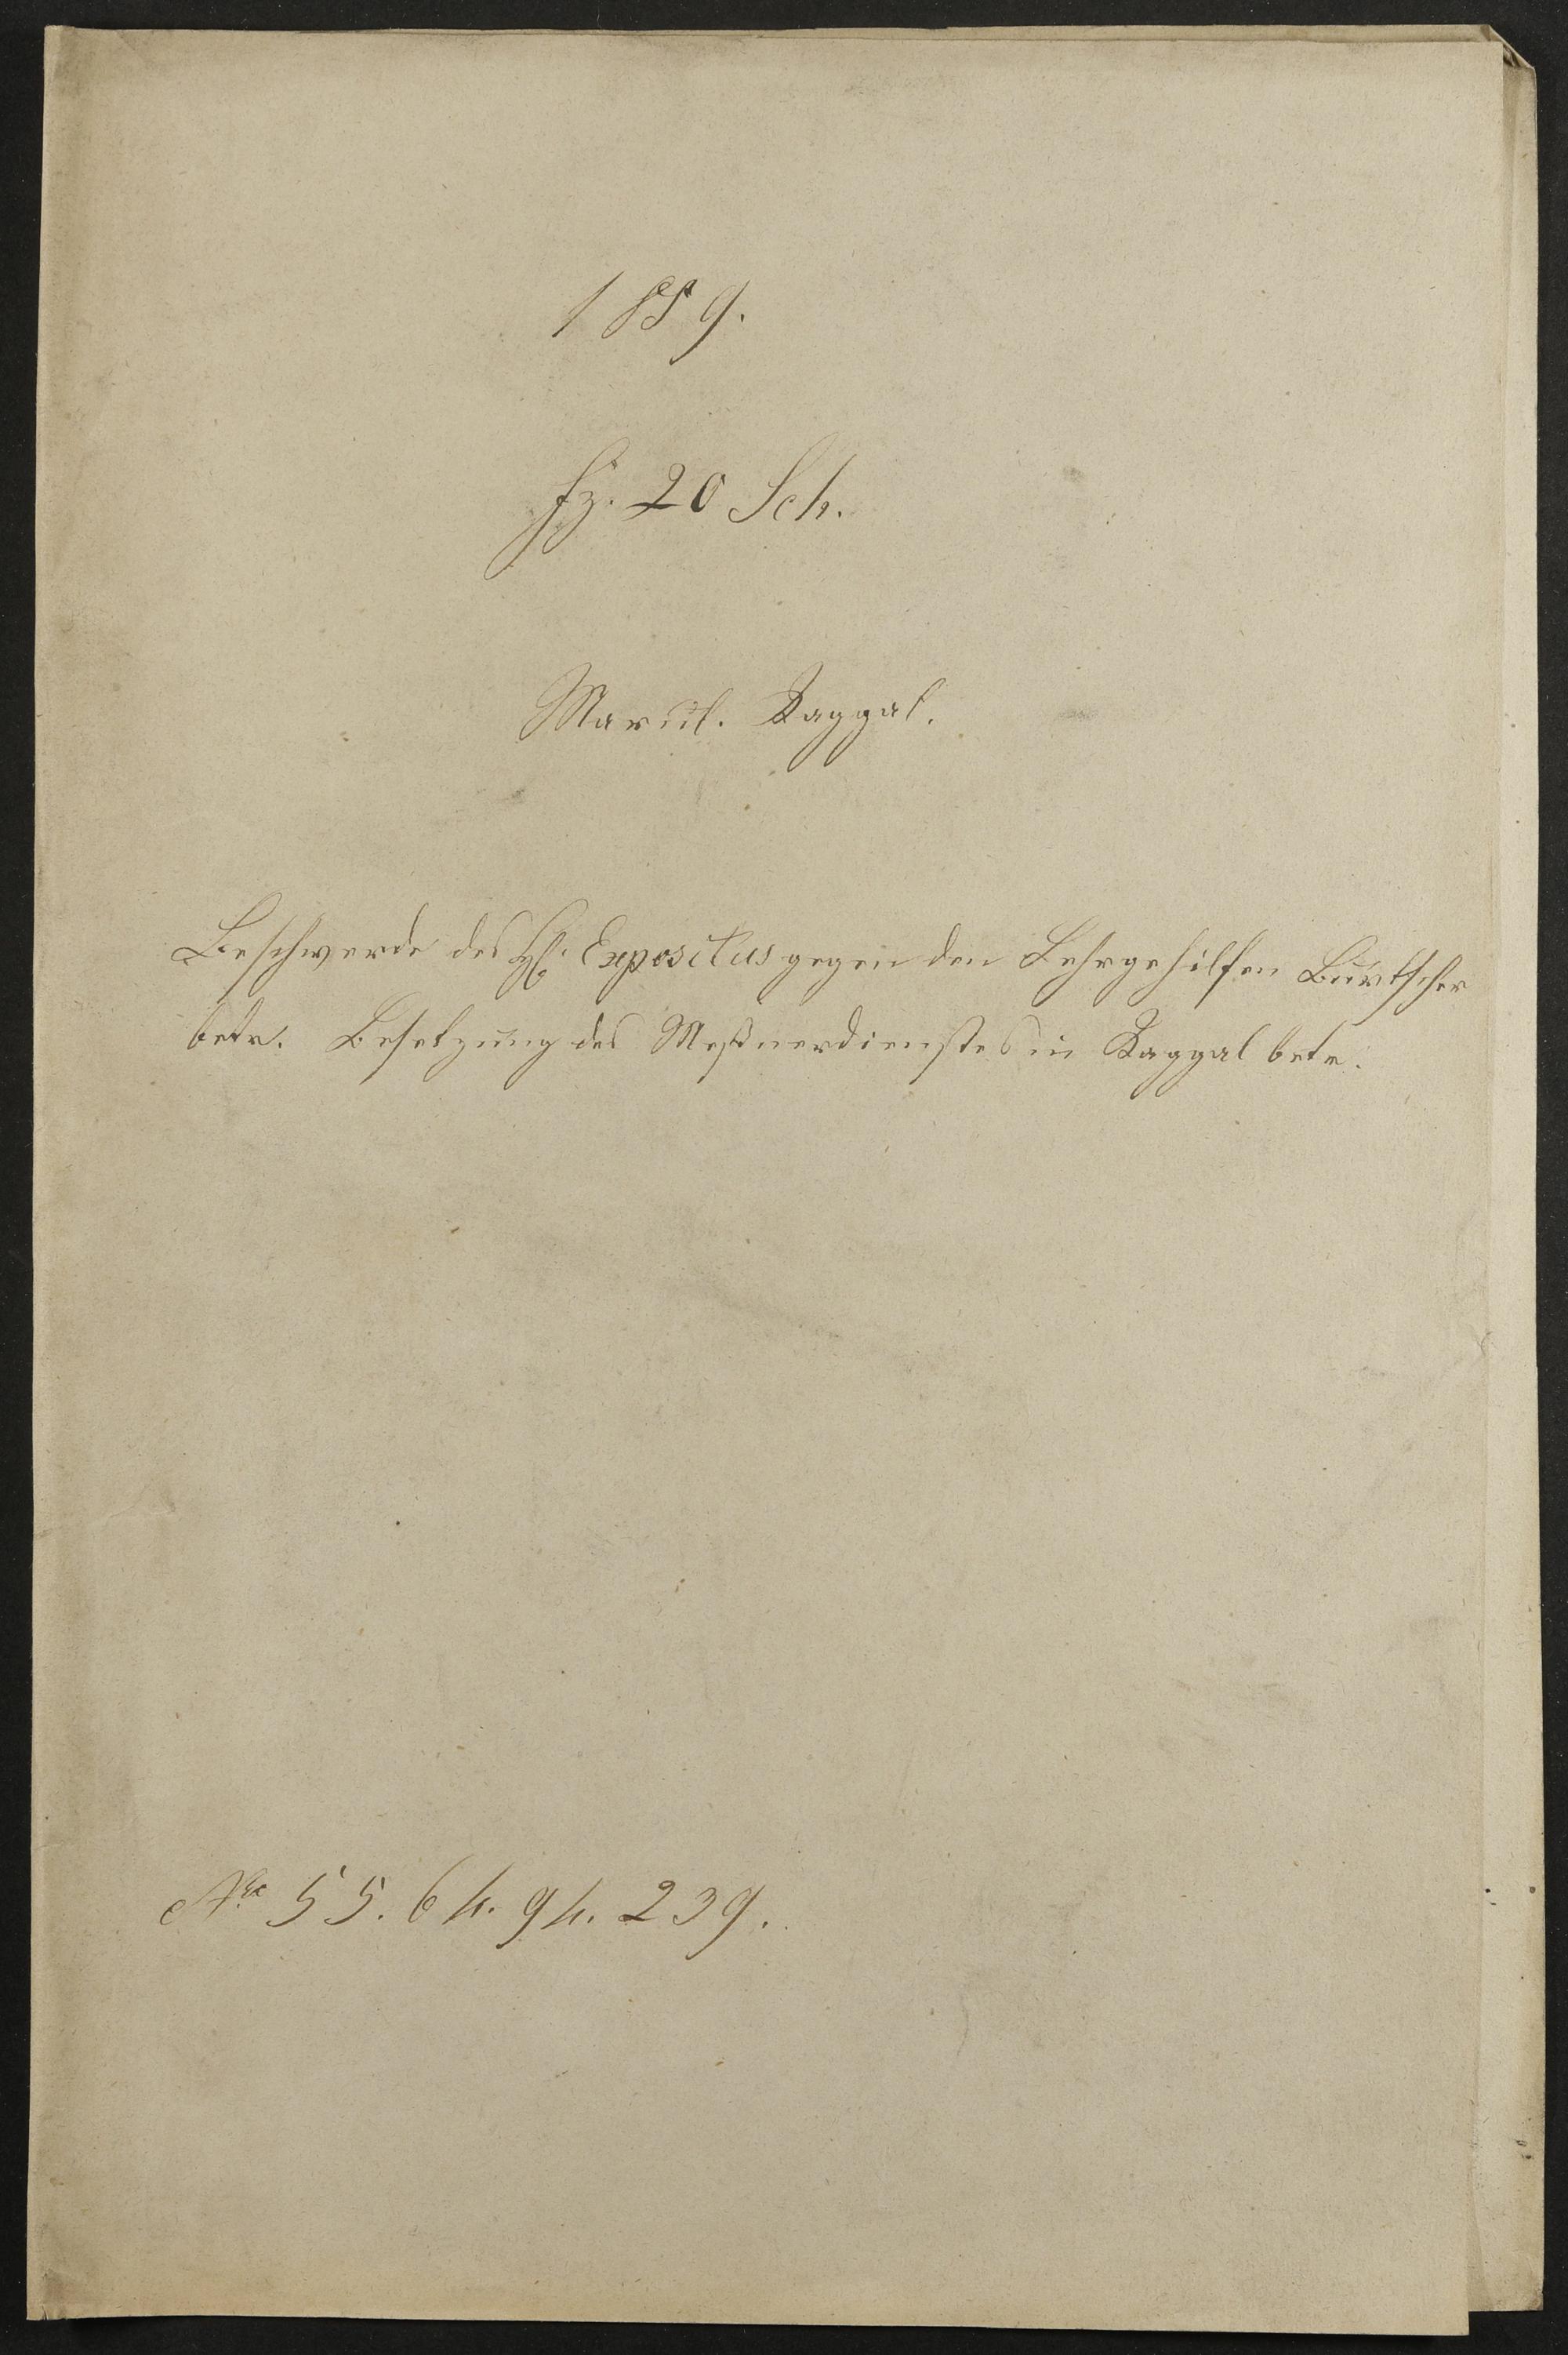 1859.
fz. 20 Sch.
Marul. Raggal.
Beschwerde des H. Expositus gegen den Lehrgehilfen Burtscher
betr. Besetzung des Meßnerdienstes in Raggal betr.
No 55. 64. 94. 239.